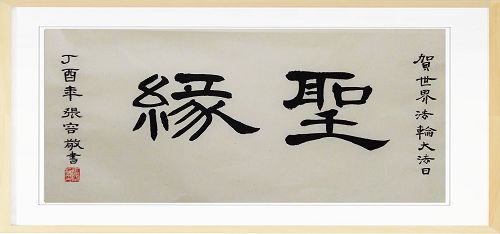 賀世界法輪大法日
聖緣
丁酉年張容敬書